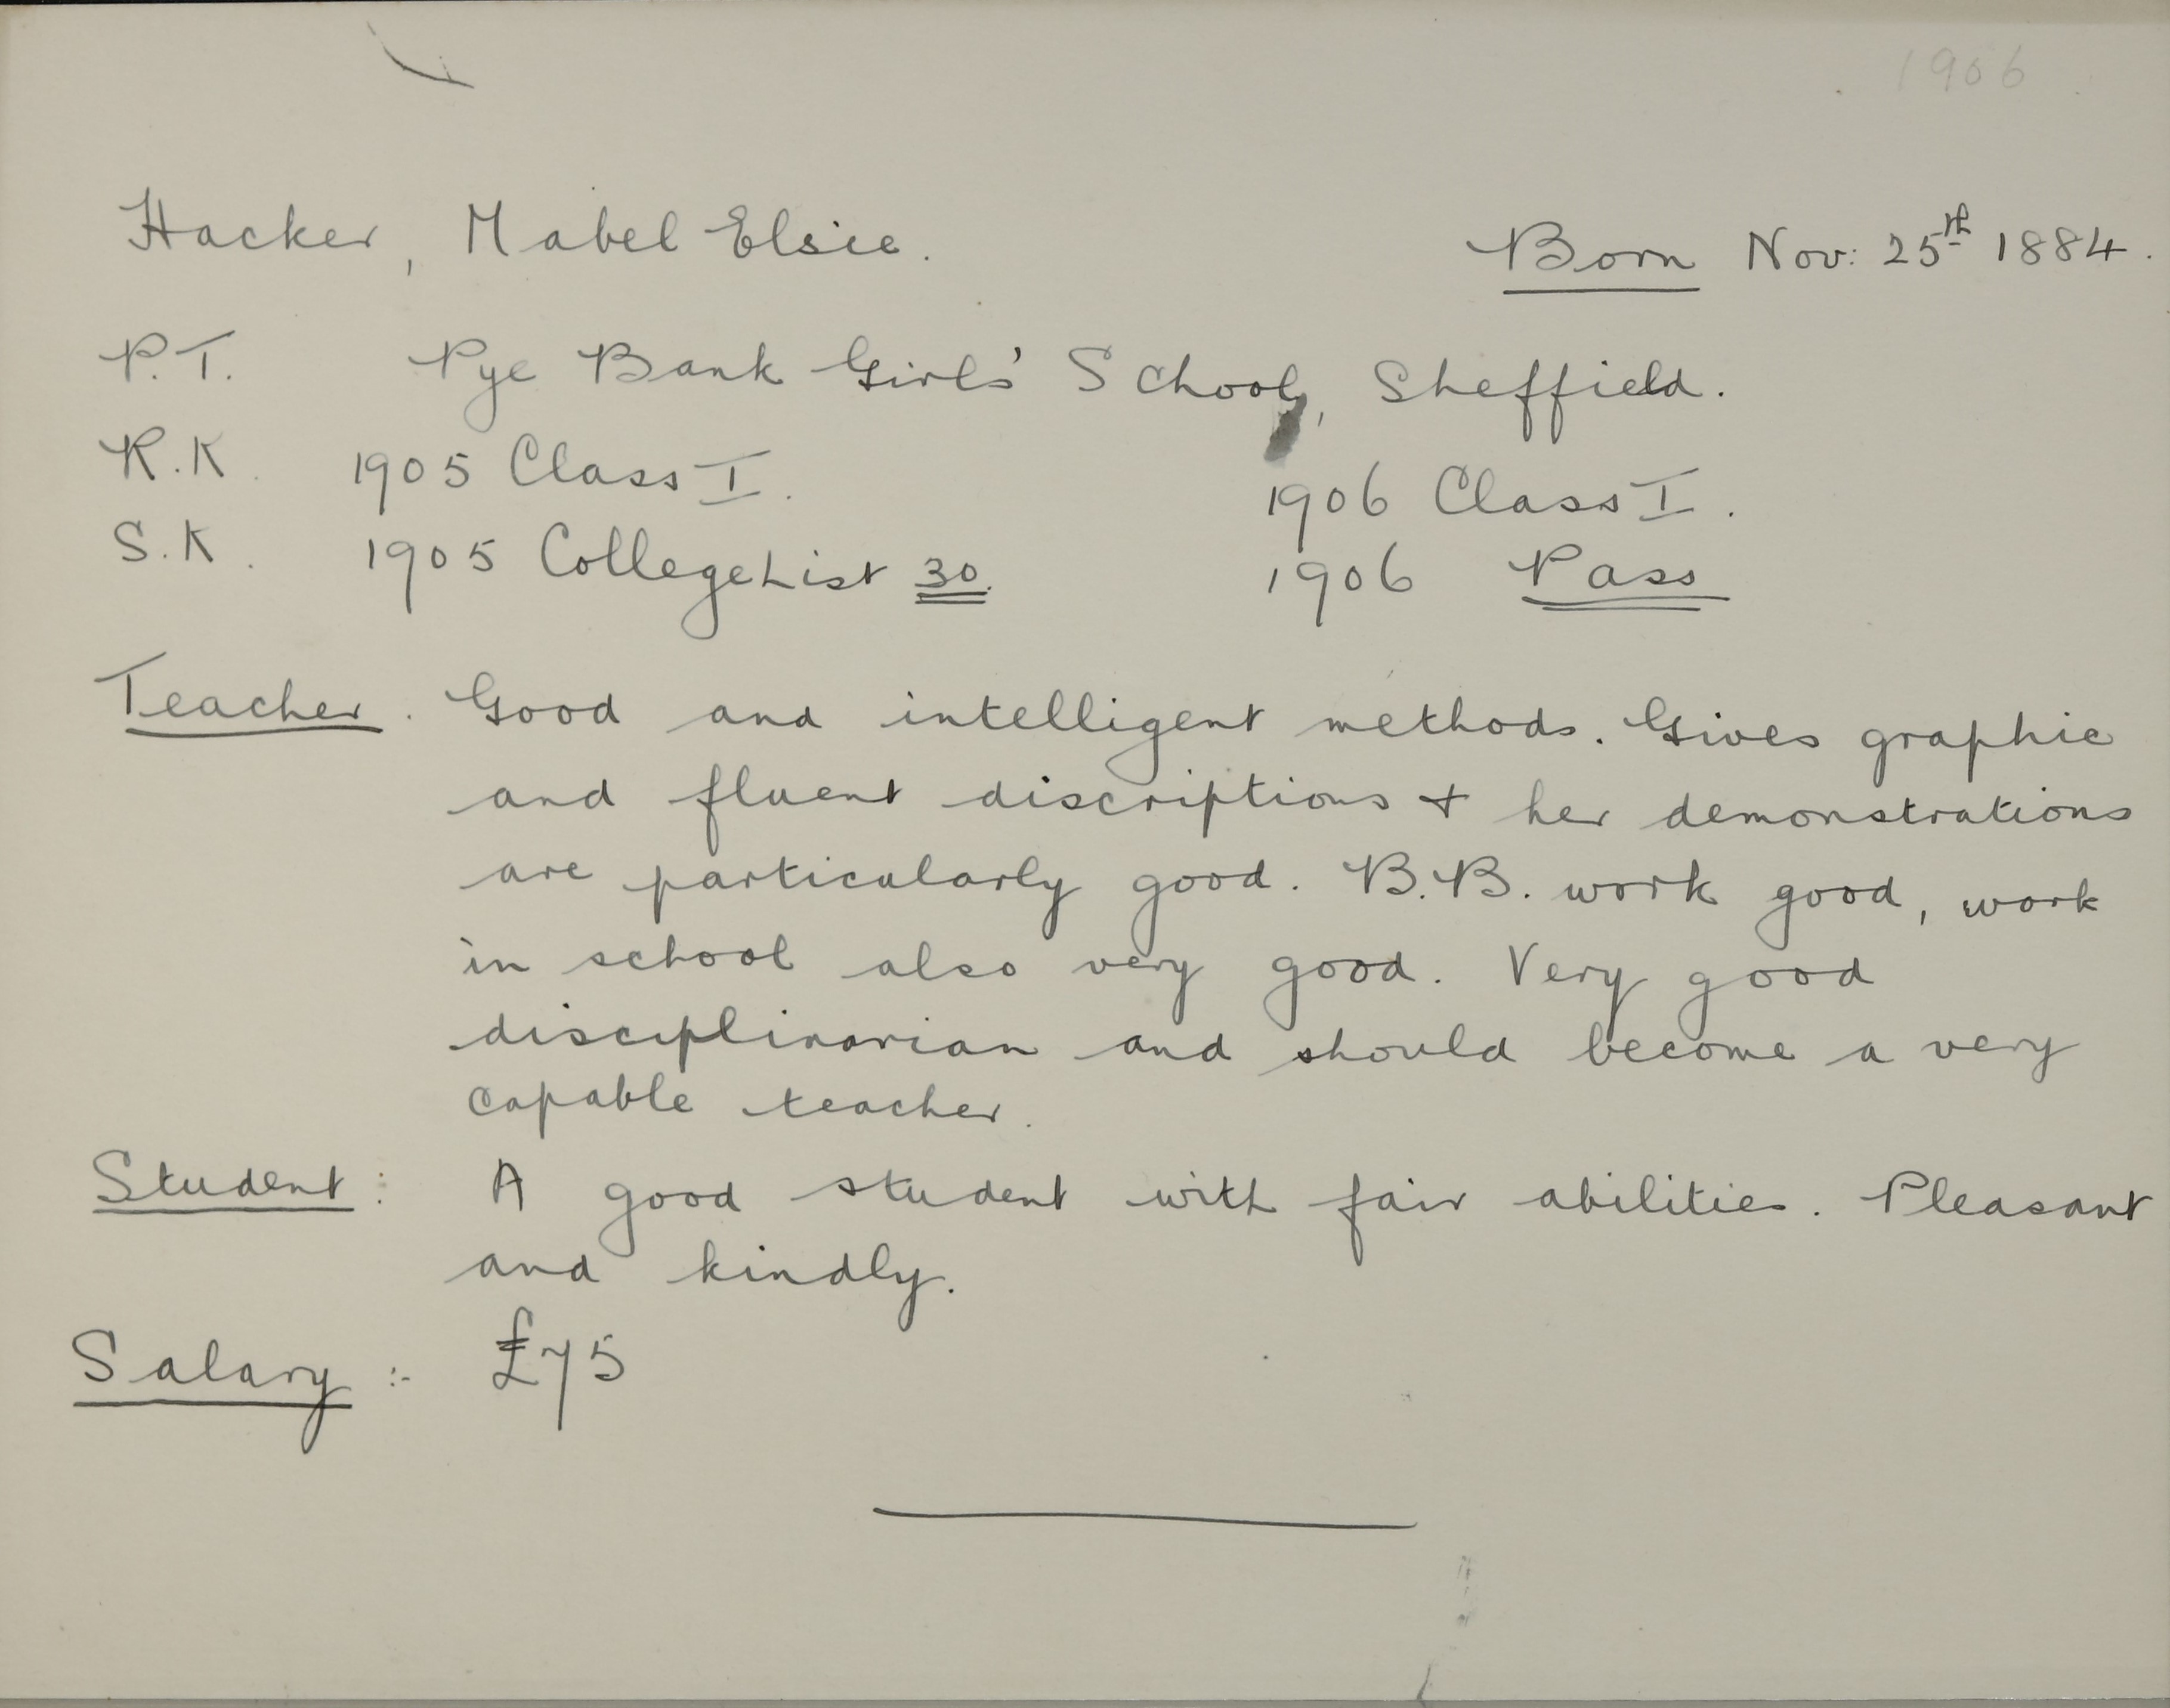 1906
Hacker, Mabel Elsie. Born Nov: 25th 1884.
P.T. Pye Bank Girls' School, Sheffield.
R.K. 1905 Class I. 1906 Class I.
S.K. 1905 College List 30. 1906 Pass
Teacher. Good and intelligent methods. Gives graphic
and fluent discriptions + her demonstrations
are particularly good. B.B. work good, work
in school also very good. Very good
disciplinarian and should become a very
capable teacher.
Student: A good student with fair abilities. Pleasant
and kindly.
Salary :- £75